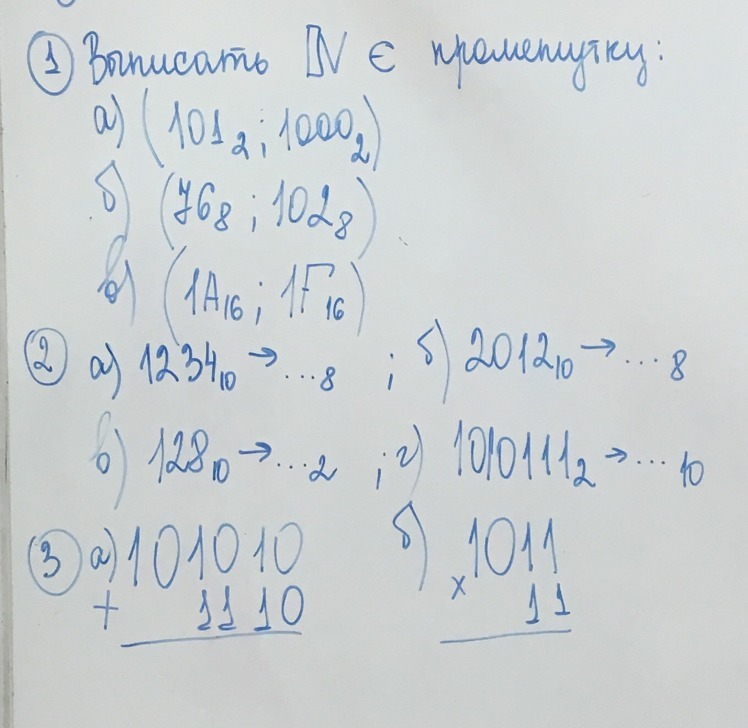 ① Выписать ℕ ∈ промежутку:
а) (101₂; 1000₂)
б) (76₈; 102₈)
в) (1A₁₆; 1F₁₆)
② а) 1234₁₀ → ...₈ ; б) 2012₁₀ → ...₈
в) 128₁₀ → ...₂ ; г) 1010111₂ → ...₁₀
③ а) 101010 б) 1011
+ 1110 × 11